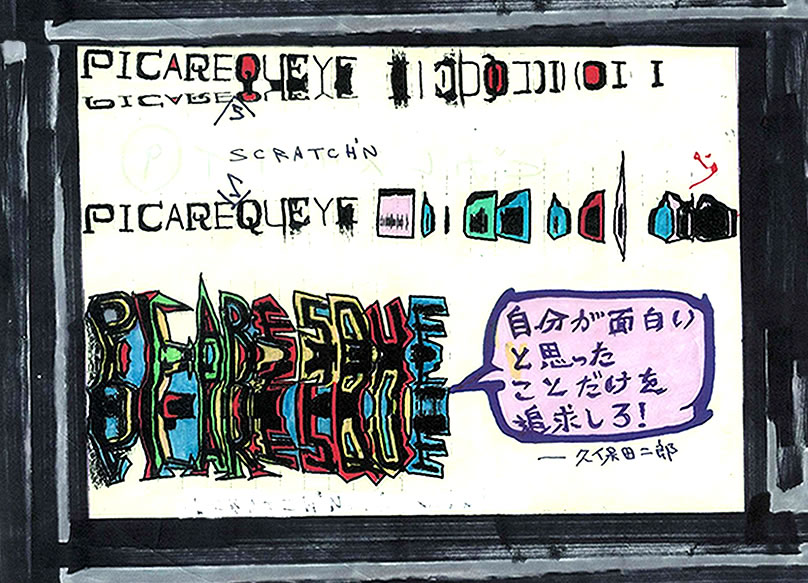 PICAREQUEYE
S
SCRATCH'N
S
PICAREQUEYE
PICARESQUE
自分が面白い
と思った
ことだけを
追求しろ!
— 久保田二郎